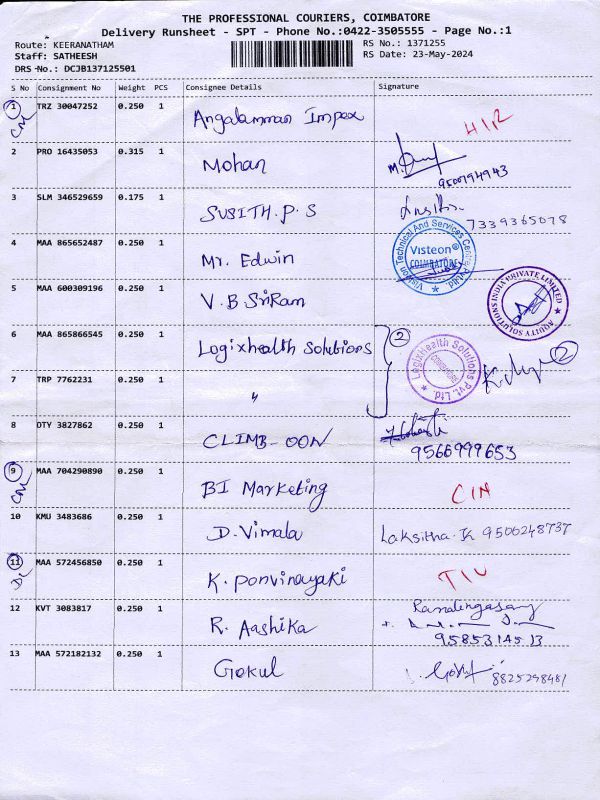 THE PROFESSIONAL COURIERS, COIMBATORE
Delivery Runsheet - SPT - Phone No.:0422-3505555 - Page No.:1
Route: KEERANATHAM
RS No.: 1371255
Staff: SATHEESH
RS Date: 23-May-2024
DRS No.: DCJB137125501
S No Consignment No Weight PCS Consignee Details Signature
1 TRZ 30047252 0.250 1 Angalamman Impex
CM
2 PRO 16435053 0.315 1 Mohan
9500794943
3 SLM 346529659 0.175 1 SUSITH.P.S
7339365078
4 MAA 865652487 0.250 1 Mr. Edwin
Visteon Technical And Services Centre Pvt.Ltd.
Visteon®
COIMBATORE
5 MAA 600309196 0.250 1 V.B SriRam
AQUITY SOLUTIONS INDIA PRIVATE LIMITED
6 MAA 865866545 0.250 1 Logixhealth Solutions 2
Logixhealth Solutions Pvt. Ltd.
COIMBATORE
2
7 TRP 7762231 0.250 1 "
8 DTY 3827862 0.250 1 CLIMB-OON
9566999653
9 MAA 704290890 0.250 1 BI Marketing
CM
10 KMU 3483686 0.250 1 D.Vimala Laksitha.K 9500248737
11 MAA 572456850 0.250 1 K. Ponvinayaki
12 KVT 3083817 0.250 1 R. Aashika
9585314513
13 MAA 572182132 0.250 1 Gokul 8825298481